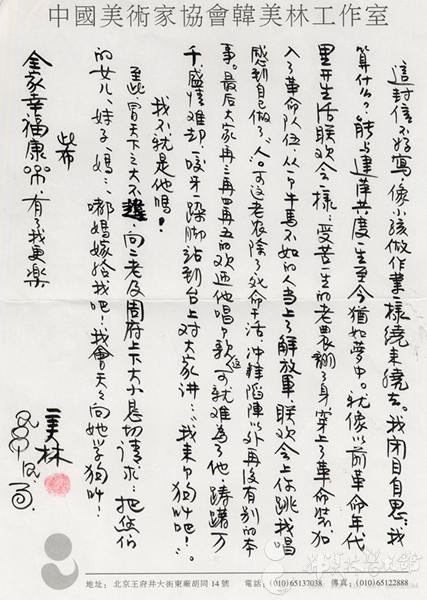 中國美術家協會韓美林工作室
這封信不好寫,像小孩做作業一樣繞來繞去。我閉目自思:我
算什么?能与建萍共度一生至今猶如夢中。就像以前革命年代
里开生活联欢会一樣:受苦一生的老農翻了身穿上了革命装、加
入了革命队伍,从一个牛馬不如的人当上了解放軍,联欢会上你跳我唱
感到自己做了"人"。可这老农除了死命干活、冲鋒陷陣以外再没有别的本
事。最后大家再三再四再五的欢迎他唱个歌,可就难為了他,踌躇万
千、盛情难却,咬牙跺脚站到台上对大家讲:"我来个狗叫吧!"。
我不就是他嗎!
至此,冒天下之大不韙,向二老及周府上下大小恳切请求:把您们
的女儿、妹子、媽…、嘟媽嫁给我吧!我會天天向她学狗叫!
此布
全家幸福康樂,有了我更樂
美林
地址:北京王府井大街東廠胡同14號 電話:(010)65137038 傳真:(010)65122888